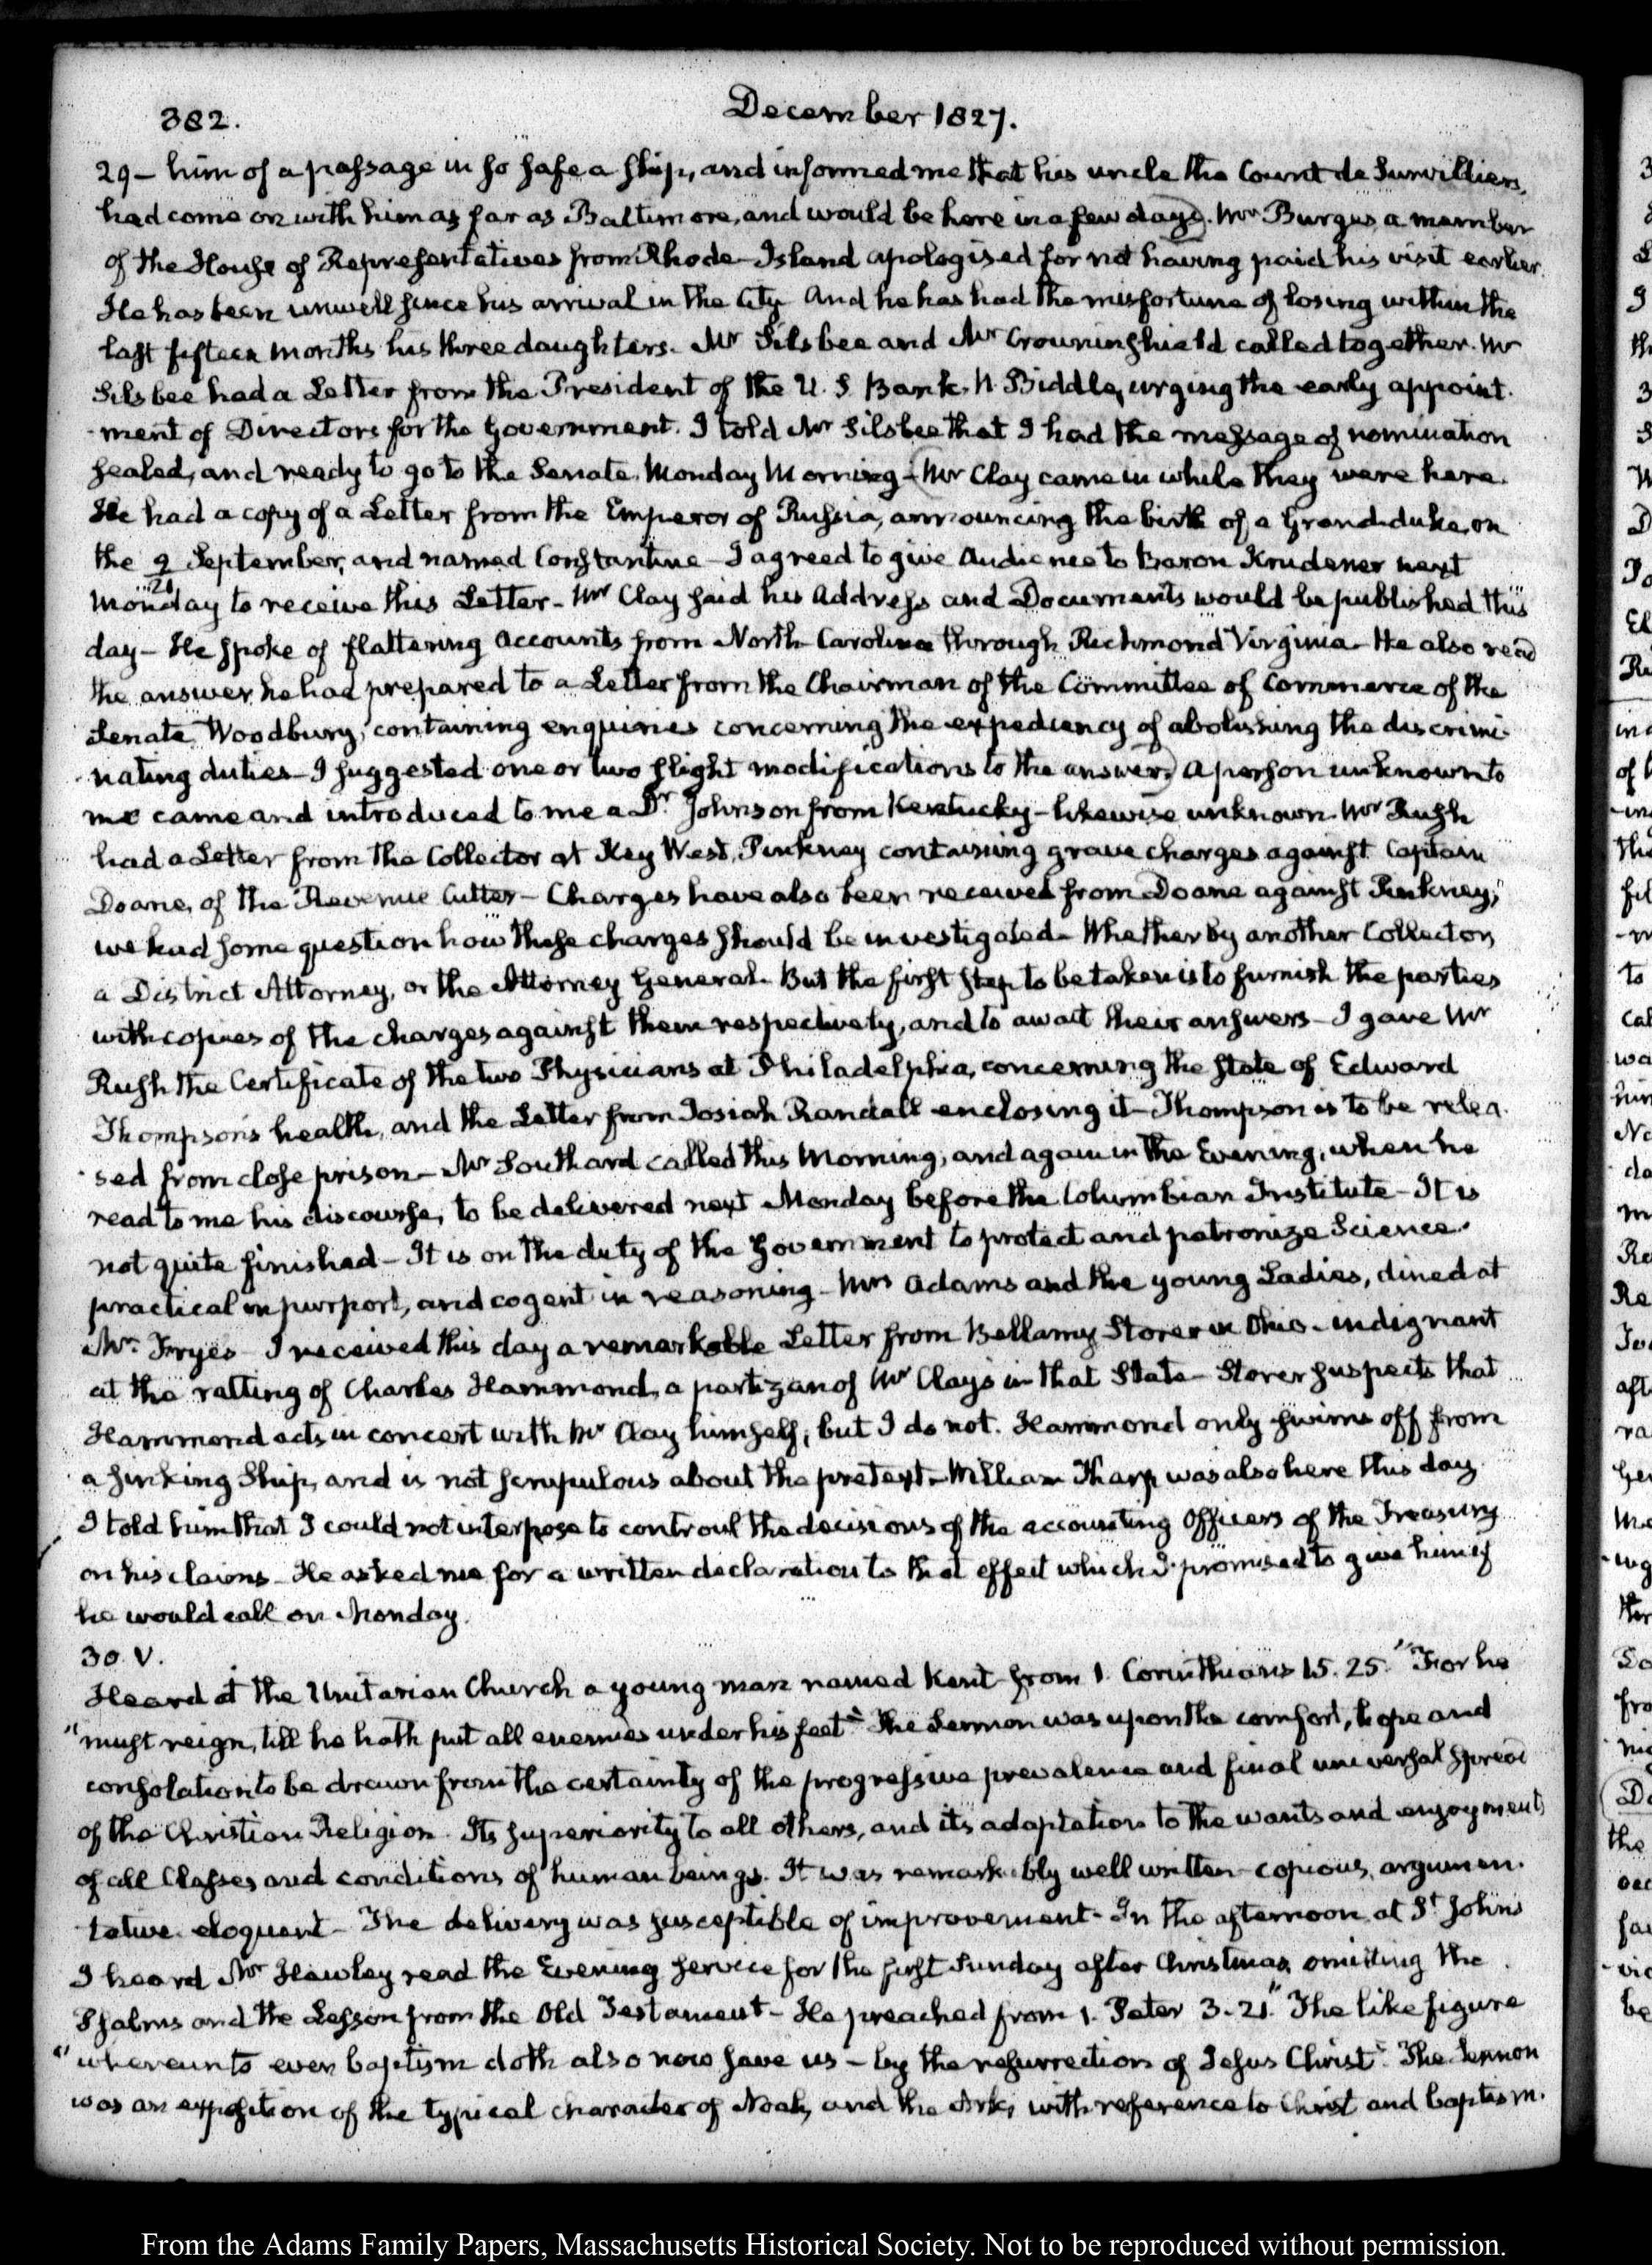 382.
December 1827.
29 – him of a passage in so safe a ship, and informed me that his uncle the Count de Survilliers,
had come on with him as far as Baltimore, and would be here in a few days. Mr Burges, a member
of the House of Representatives from Rhode-Island apologised for not having paid his visit earlier.
He has been unwell since his arrival in the City. And he has had the misfortune of losing within the
last fifteen months his three daughters. Mr Silsbee and Mr Crowninshield called together. Mr
Silsbee had a Letter from the President of the U. S. Bank, N Biddle, urging the early appoint-
-ment of Directors for the Government. I told Mr Silsbee that I had the message of nomination
sealed, and ready to go to the Senate, Monday Morning – Mr Clay came in while they were here.
He had a copy of a Letter from the Emperor of Russia, announcing the birth of a Grand-duke, on
the 9/21 September, and named Constantine – I agreed to give Audience to Baron Krudener next
Monday to receive this Letter – Mr Clay said his Address and Documents would be published this
day – He spoke of flattering accounts from North-Carolina through Richmond Virginia – He also read
the answer he had prepared to a Letter from the Chairman of the Committee of Commerce of the
Senate, Woodbury, containing enquiries concerning the expediency of abolishing the discrimi-
-nating duties – I suggested one or two slight modifications to the answer. A person unknown to
me came and introduced to me a Dr. Johnson from Kentucky – likewise unknown. Mr Rush
had a Letter from the Collector at Key West, Pinkney containing grave charges against Captain
Doane, of the Revenue Cutter – Charges have also been received from Doane against Pinkney;
we had some question how these charges should be investigated – Whether by another Collector,
a District Attorney, or the Attorney General. But the first step to be taken is to furnish the parties
with copies of the charges against them respectively, and to await their answers – I gave Mr
Rush the Certificate of the two Physicians at Philadelphia, concerning the state of Edward
Thompson's health, and the Letter from Josiah Randall enclosing it – Thompson is to be relea-
-sed from close prison – Mr Southard called this Morning, and again in the Evening, when he
read to me his discourse, to be delivered next Monday before the Columbian Institute – It is
not quite finished – It is on the duty of the Government to protect and patronize Science.
practical in purport, and cogent in reasoning – Mrs Adams and the young Ladies, dined at
Mr. Fryes – I received this day a remarkable Letter from Bellamy Storer in Ohio – indignant
at the ratting of Charles Hammond, a partizan of Mr Clay's in that State – Storer suspects that
Hammond acts in concert with Mr Clay himself; but I do not. Hammond only swims off from
a sinking Ship, and is not scrupulous about the pretext – William Tharp was also here this day
I told him that I could not interpose to controul the decisions of the accounting Officers of the Treasury
on his claims – He asked me for a written declaration to that effect which I promised to give him if
he would call on Monday.
30. V.
Heard at the Unitarian Church a young man named Kent from 1. Corinthians 15. 25. "For he
"must reign, till he hath put all enemies under his feet" The Sermon was upon the comfort, hope and
consolation to be drawn from the certainty of the progressive prevalence and final universal spread
of the Christian Religion. Its superiority to all others, and its adaptation to the wants and enjoyments
of all Classes and conditions of human beings. It was remarkably well written – copious, argumen-
tative eloquent – The delivery was susceptible of improvement – In the afternoon, at St Johns
I heard Mr Hawley read the Evening service for the first Sunday after Christmas, omitting the
Psalms and the Lesson from the Old Testament – He preached from 1. Peter 3. 21. "The like figure
"whereunto even baptism doth also now save us – by the resurrection of Jesus Christ" The Sermon
was an exposition of the typical character of Noah, and the Ark, with reference to Christ and baptism.
From the Adams Family Papers, Massachusetts Historical Society. Not to be reproduced without permission.